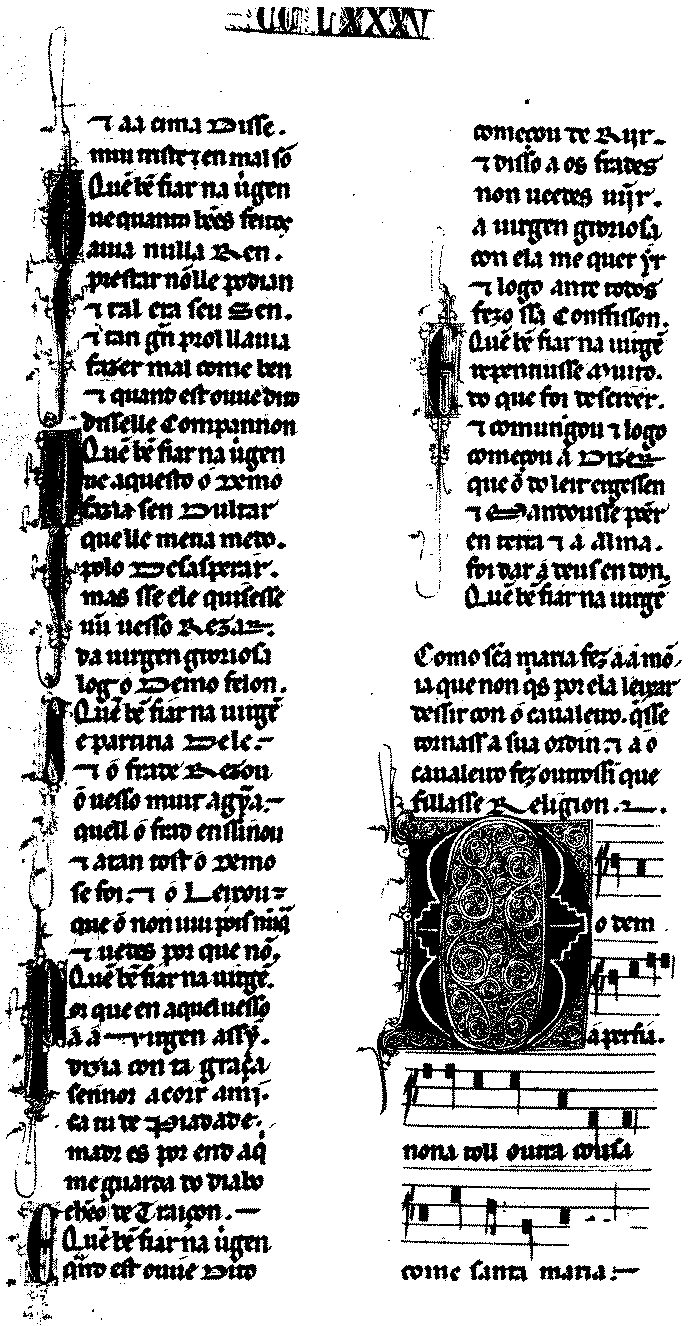 CCLXXXV
⁊ aa cima Disse.
muu mister en mal sõ
Quẽ bẽ fiar na uirgen
ue quanto bẽes fezer
auia nulla Ren.
prestar nõlle podian
⁊ tal era seu Sen.
⁊ tan gñ prol ll auia
fazer mal come ben
⁊ quand est ouue dito
disselle Compannon
Quẽ bẽ fiar na uirgen
ue aquesto o Demo
fazia sen Dultar
que lle mena medo.
polo Desasperar.
mas sse ele quisesse
uũ uesso Rezar.
da uirgen gloriosa
log o Demo felon.
Quẽ bẽ fiar na uirgẽ
e partiria Dele.
⁊ o frade Rezou
o uesso muit agỹa.
quell o frad enssinou
⁊ atan tost o Demo
se foi. ⁊ o Leixou
que o non uiu pois
⁊ uedes por que nõ.
Quẽ bẽ fiar na uirgẽ.
or que en aquel uesso
á á uirgen assy.
dizia con ta graça
sennor acorr amj.
ca tu de Piadade.
madr es por end aq̇
me guarda do diabo
chẽo de Traiçon.
Quẽ bẽ fiar na uirgen
q̃nd est ouue Dito
começou de Rijr.
⁊ disso a os frades
non ueedes uĩjr.
a uirgen gloriosa
con ela me quer ỹr
⁊ logo ante todos
fezo ssa Confisson.
Quẽ bẽ fiar na uirgẽ
repentiusse muito.
do que foi descreer.
⁊ comungou ⁊ logo
começou a Dizer
que o do leit ergessen
⁊ Mandousse põer
en terra ⁊ a Alma.
foi dar a deus en don.
Quẽ bẽ fiar na uirgẽ
Como scã maria fez aa mõ
ia que non q̇s por ela leixar
dessir con o caualeiro. q̇sse
tornass a sua ordin. ⁊ a o
caualeiro fez outrossi que
fillasse Religion.
D o dem
a perfia.
nona toll outra cousa
come santa maria.